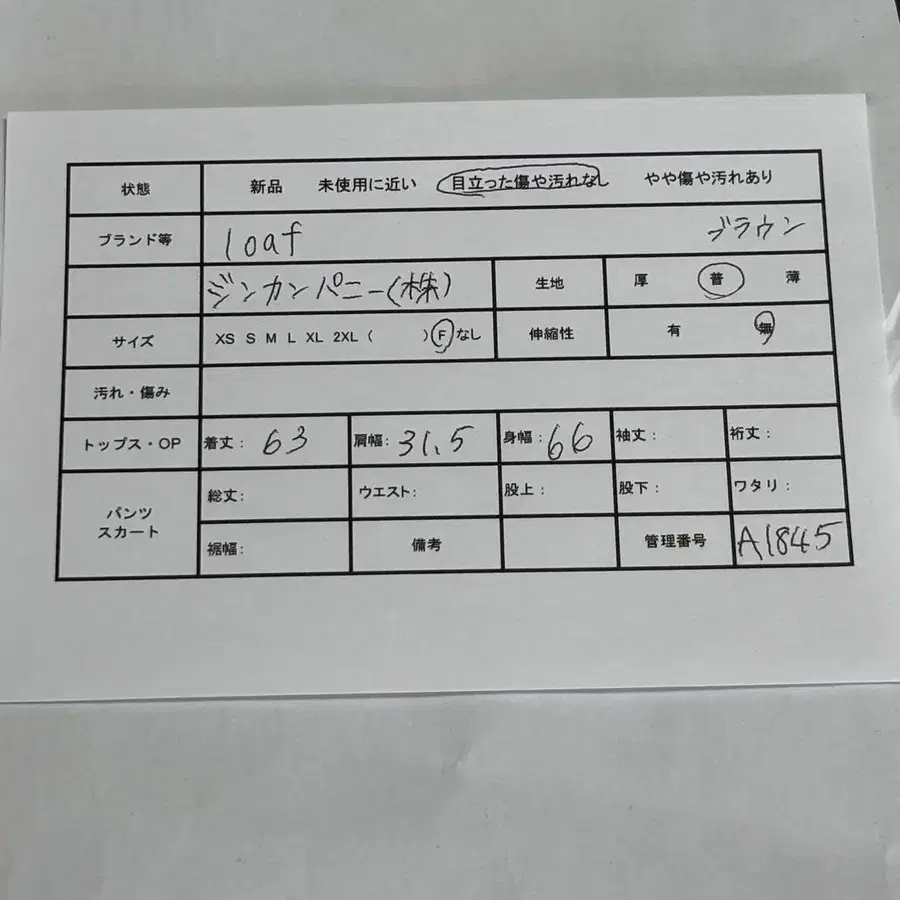 状態 新品 未使用に近い 目立った傷や汚れなし やや傷や汚れあり
ブランド等 loaf ブラウン
ジンカンパニー(株) 生地 厚 普 薄
サイズ XS S M L XL 2XL ( ) F なし 伸縮性 有 無
汚れ・傷み
トップス・OP 着丈: 63 肩幅: 31.5 身幅: 66 袖丈: 裄丈:
パンツ スカート 総丈: ウエスト: 股上: 股下: ワタリ:
裾幅: 備考 管理番号 A1845